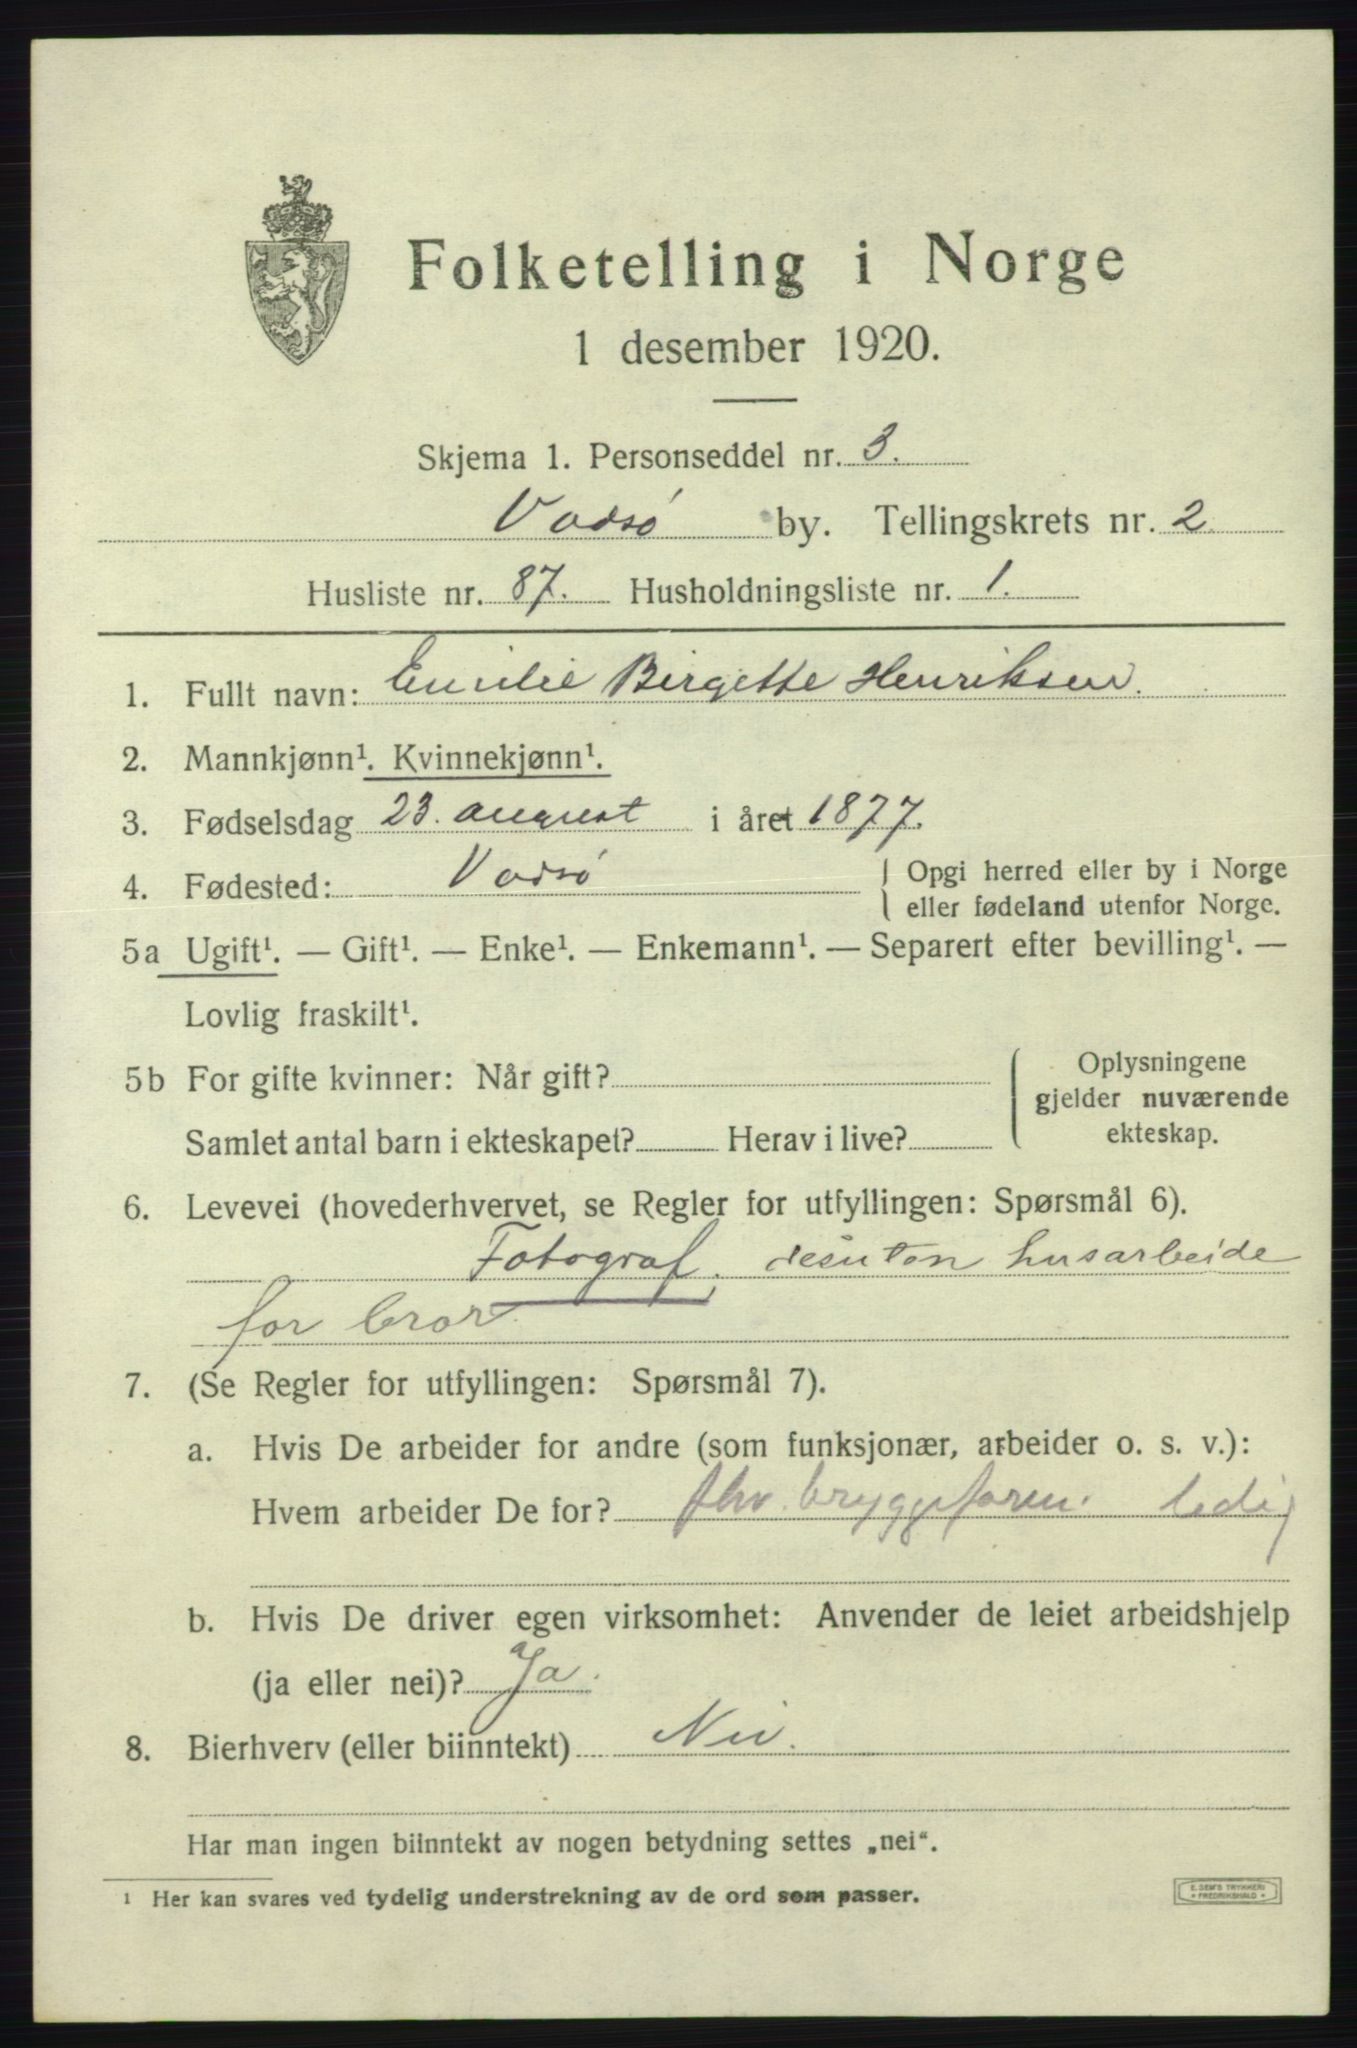 Folketelling i Norge
1 desember 1920.
Skjema 1. Personseddel nr. 3.
Vadsø by. Tellingskrets nr. 2
Husliste nr. 87. Husholdningsliste nr. 1.
1. Fullt navn: Emilie Birgette Henriksen.
2. Mannkjønn¹. Kvinnekjønn¹.
3. Fødselsdag 23. august i året 1877.
4. Fødested: Vadsø { Opgi herred eller by i Norge
eller fødeland utenfor Norge.
5a Ugift¹. — Gift¹. — Enke¹. — Enkemann¹. — Separert efter bevilling¹. —
Lovlig fraskilt¹.
5b For gifte kvinner: Når gift? { Oplysningene
gjelder nuværende
Samlet antal barn i ekteskapet? Herav i live? ekteskap.
6. Levevei (hovederhvervet, se Regler for utfyllingen: Spørsmål 6).
Fotograf, desuten husarbeide
for bror
7. (Se Regler for utfyllingen: Spørsmål 7).
a. Hvis De arbeider for andre (som funksjonær, arbeider o. s. v.):
Hvem arbeider De for? bryggeform. ledig
b. Hvis De driver egen virksomhet: Anvender de leiet arbeidshjelp
(ja eller nei)? Ja.
8. Bierhverv (eller biinntekt) Nei.
Har man ingen biinntekt av nogen betydning settes „nei“.
¹ Her kan svares ved tydelig understrekning av de ord som passer.
E. SEM'S TRYKKERI
FREDRIKSHALD